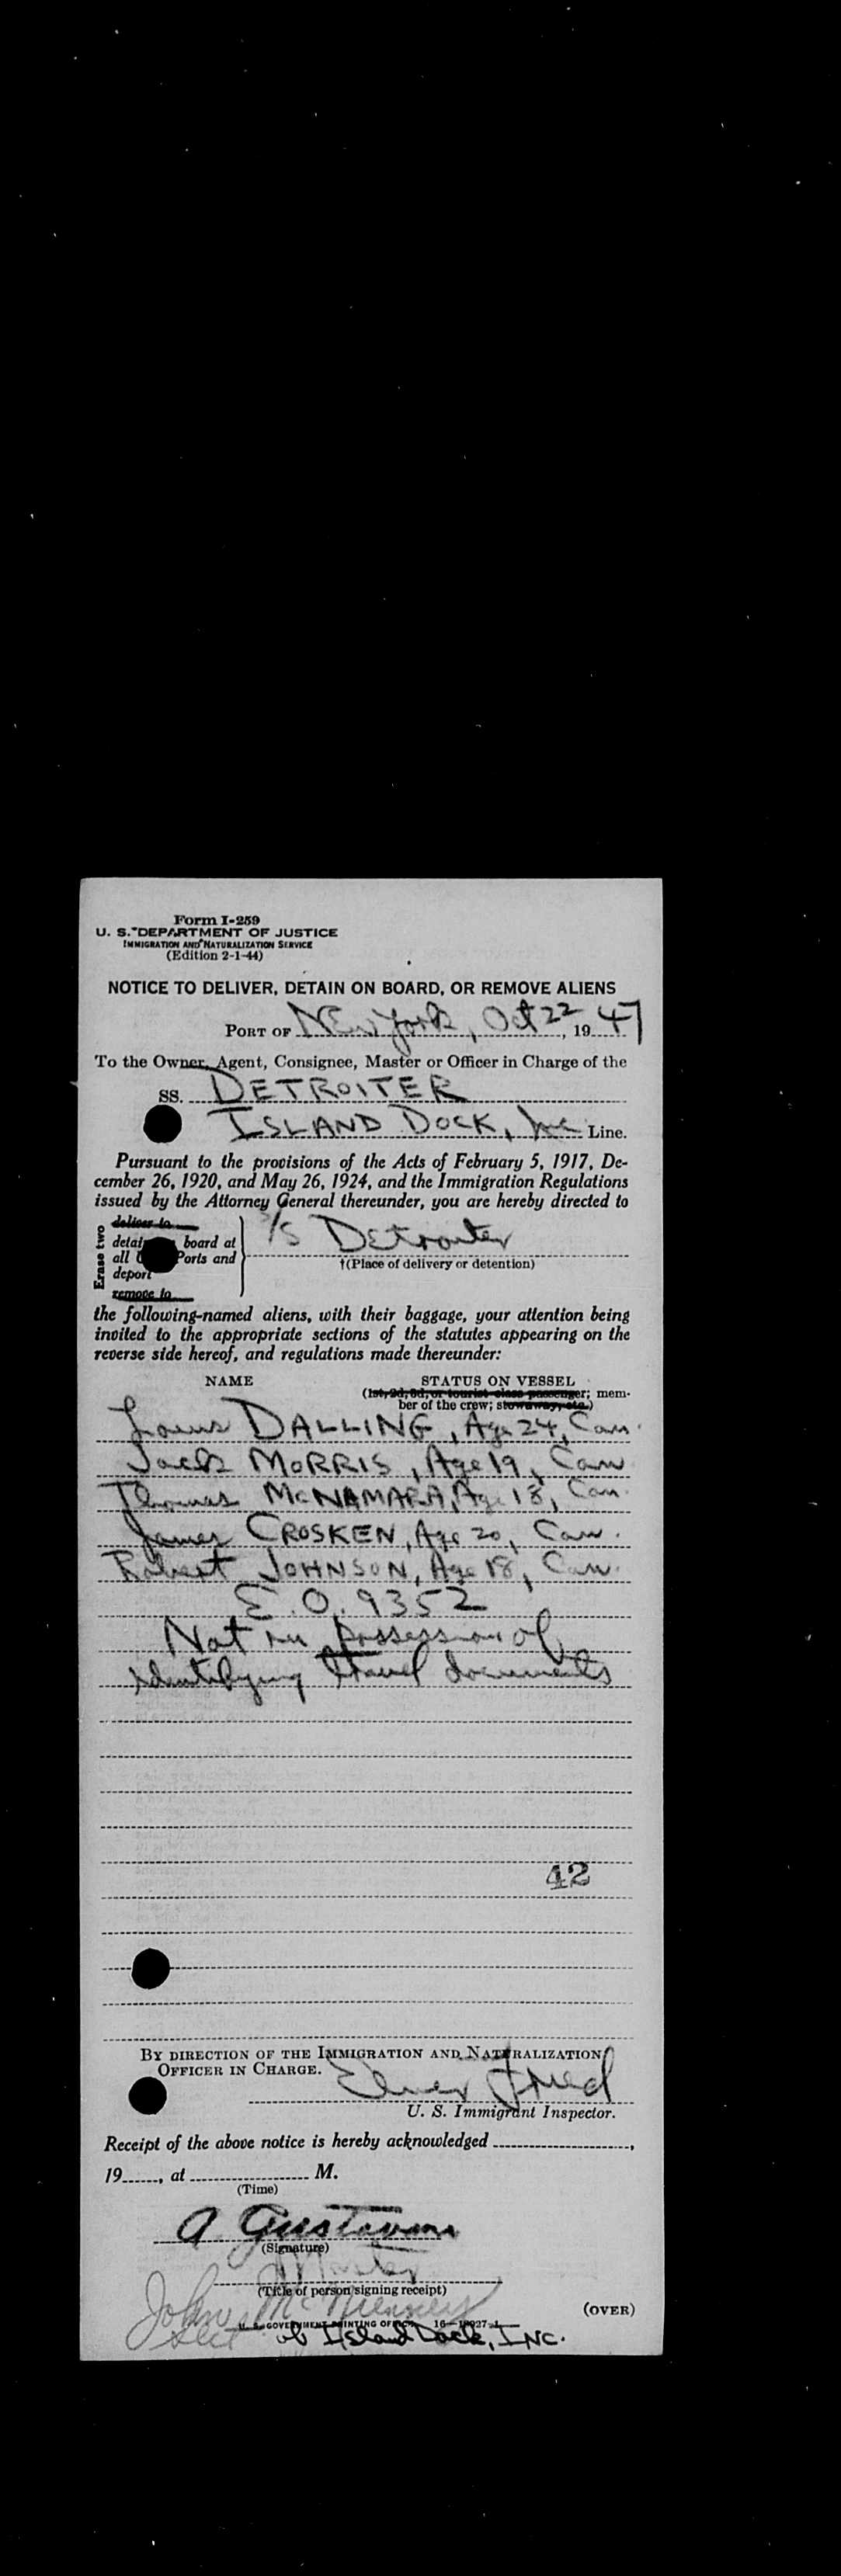 Form I-259
U. S. DEPARTMENT OF JUSTICE
IMMIGRATION AND NATURALIZATION SERVICE
(Edition 2-1-44)
NOTICE TO DELIVER, DETAIN ON BOARD, OR REMOVE ALIENS
PORT OF New York, Oct 22, 1947
To the Owner, Agent, Consignee, Master or Officer in Charge of the
SS. DETROITER
ISLAND DOCK, Inc Line.
Pursuant to the provisions of the Acts of February 5, 1917, De-
cember 26, 1920, and May 26, 1924, and the Immigration Regulations
issued by the Attorney General thereunder, you are hereby directed to
Erase two
deliver to
detain board at
all Ports and
deport
remove to
S/S Detroiter
†(Place of delivery or detention)
the following-named aliens, with their baggage, your attention being
invited to the appropriate sections of the statutes appearing on the
reverse side hereof, and regulations made thereunder:
NAME STATUS ON VESSEL
(1st, 2d, 3d, or tourist class passenger; mem-
ber of the crew; stowaway, etc.)
Louis DALLING, Age 24, Can.
Jack MORRIS, Age 19, Can
Thomas McNAMARA, Age 18, Can.
James CROSKEN, Age 20, Can.
Robert JOHNSON, Age 18, Can.
E.O. 9352
Not in possession of
identifying travel documents
42
BY DIRECTION OF THE IMMIGRATION AND NATURALIZATION
OFFICER IN CHARGE.
Elmer Fried
U. S. Immigrant Inspector.
Receipt of the above notice is hereby acknowledged ,
19 , at M.
(Time)
A Gustavson
(Signature)
Master
(Title of person signing receipt)
John
(OVER)
U. S. GOVERNMENT PRINTING OFFICE
Island Dock, INC.